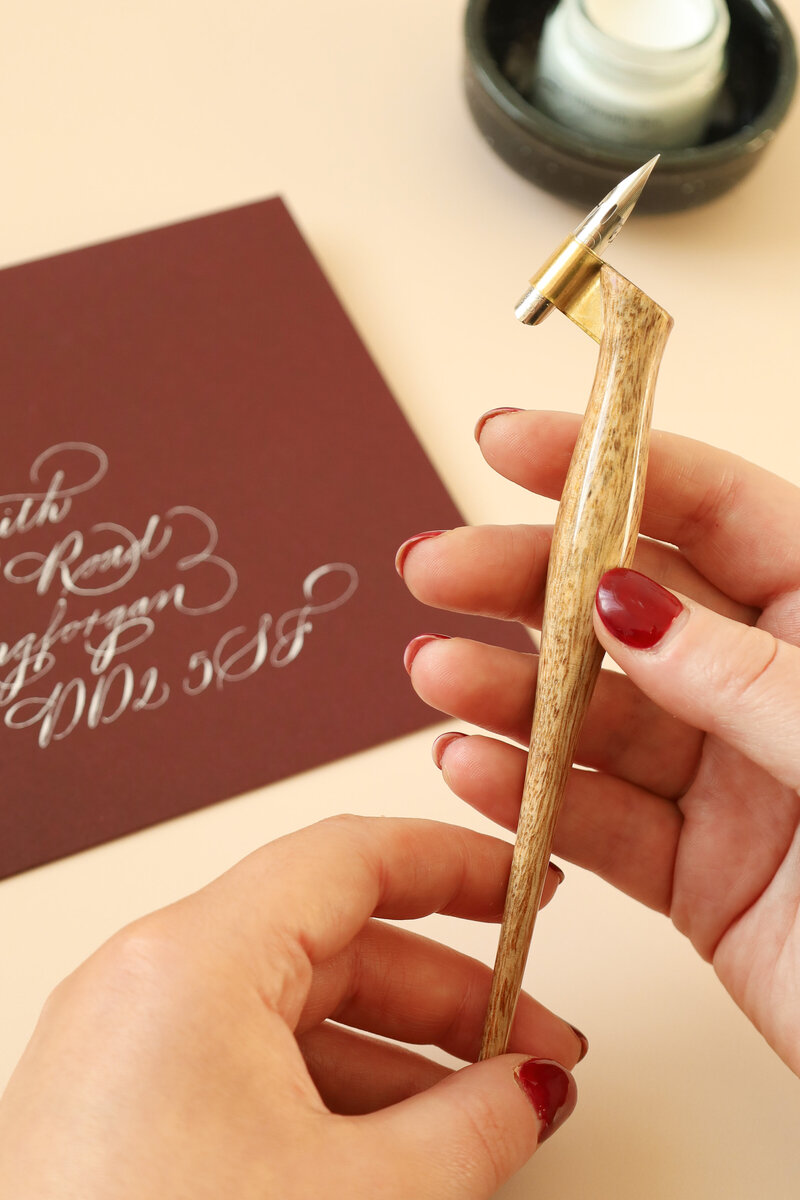 ith
Road
ngforgan
DD2 5SF